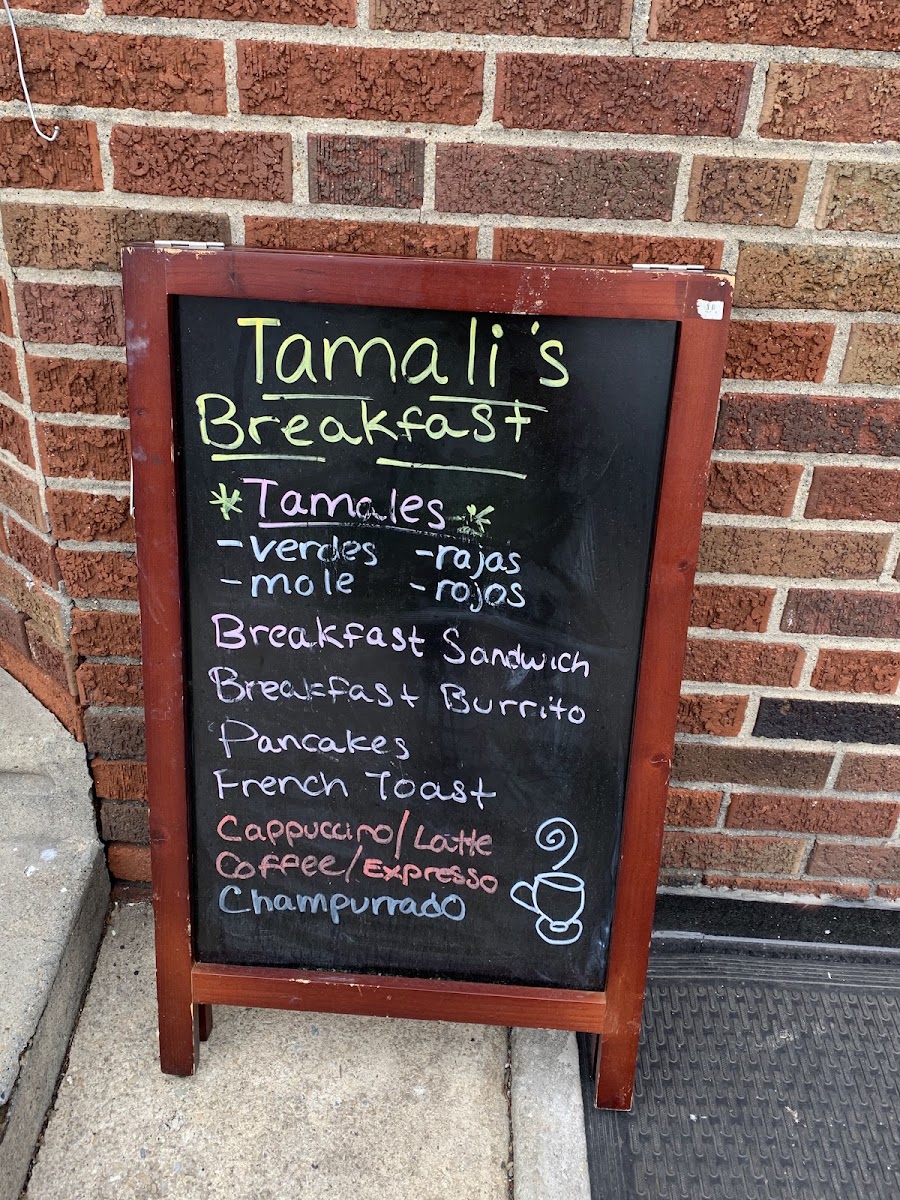 Tamali's
Breakfast
* Tamales *
- verdes - rajas
- mole - rojos
Breakfast Sandwich
Breakfast Burrito
Pancakes
French Toast
Cappuccino/Latte
Coffee/Expresso
Champurrado